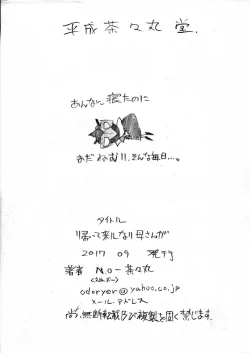 平成茶々丸堂.
あんなに寝たのに
まだねむい!!、そんな毎日…。
タイトル
帰って来ない母さんが
2017 09 発刊
著者 N.O－茶々丸
odoryer@yahoo.co.jp
メールアドレス
尚、無断転載及び複製を固く禁じます。